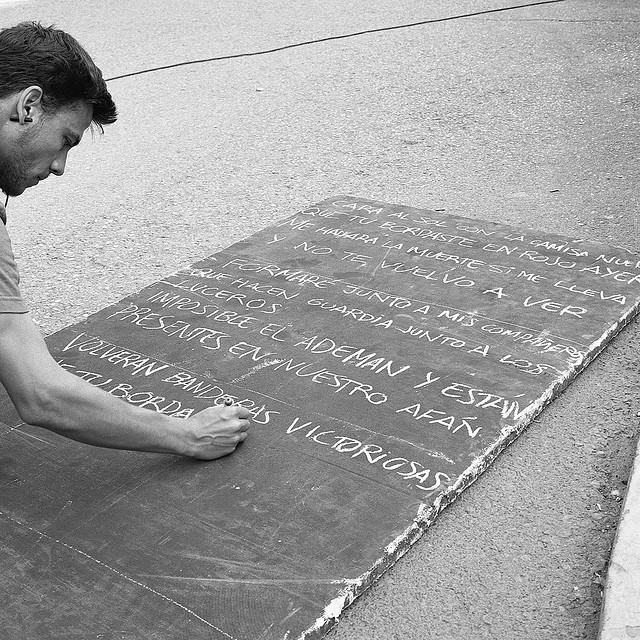 CARA AL SOL CON LA CAMISA NUEV
QUE TU BORDASTE EN ROJO AYER
ME HALLARÁ LA MUERTE SI ME LLEVA
Y NO TE VUELVO A VER
FORMARÉ JUNTO A MIS COMPAÑEROS
QUE HACEN GUARDIA JUNTO A LOS
LUCEROS
IMPOSIBLE EL ADEMAN Y ESTÁN
PRESENTES EN NUESTRO AFÁN
VOLVERAN BANDERAS VICTORIOSAS